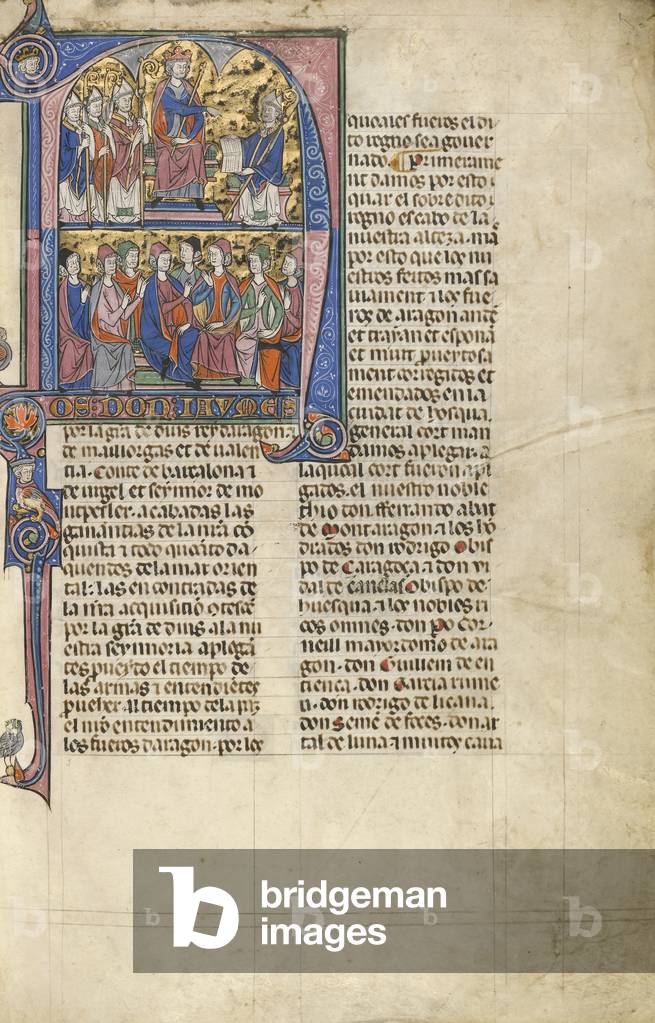 OS DON IAUMES
por la gr̃a de dius rey daragon ⁊
de maillorgas et de ualen
tia. Conte de barcalona ⁊
de urgel et seynnor de mo
ntpesler. acabadas las
ganantias de la nr̃a cō
quista ⁊ todo quāto da
quentes de la mar orien
tal: las encontradas de
la nr̃a acquisitiō
por la gr̃a de dius ala nu
estra seynnoria aplega
tes puesto el tiempo de
las armas ⁊
el nr̃o entendimiento a
les fueros daragon. por los
quoales fueros el di
to regno sea gouer
nado. Primerame
nt damos por esto
quar el sobredito
regno es cabo de la
nuestra alteza. mas
por esto que los nu
estros feitos
uament ⁊ los fue
ros de aragon antē
et trayan et esponā
et muit prueytosa
ment corregitos et
emendados en la
ciudat de hosqua.
general cort man
damos aplegar. a
la quoal cort fueron apl
gados. el nuestro noble
thio don fferrando abat
de Montaragon ⁊ los hō
drados don rodrigo Obis
po de Caragoça ⁊ don vi
dal de canelas Obispo de
huesqua. ⁊ los nobles ri
cos omnes. don Po Cor
neill mayordomo de ara
gon. don Guillem de en
tienca. don Garcia rume
u. don rodrigo de licana.
don Semē de foces. don ar
tal de luna. ⁊ muitos caua
b bridgeman
images